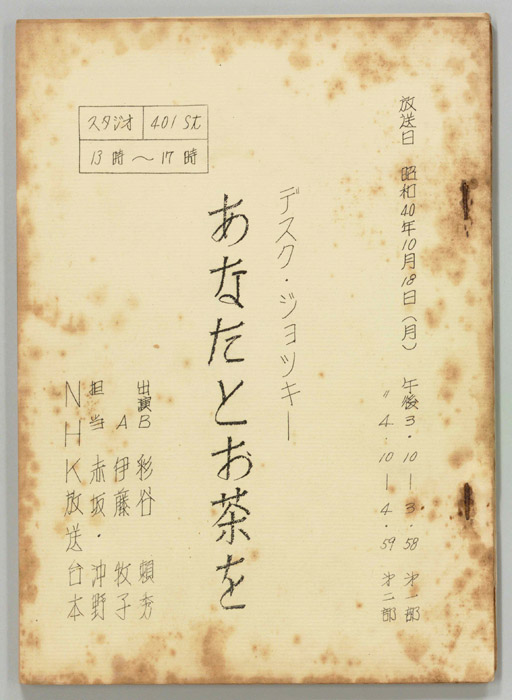 放送日 昭和40年10月18日（月） 午後3・10―3・58 第一部
〃 4・10―4・59 第二部
スタジオ 401 St
13時〜17時
デスク・ジョッキー
あなたとお茶を
出演B 彩谷 頻秀
A 伊藤 牧子
担当 赤坂・沖野
NHK放送台本